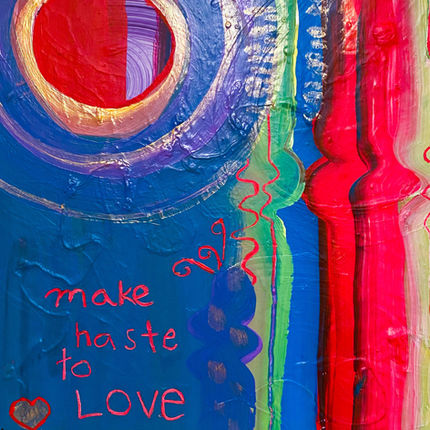 make
haste
to
LOVE